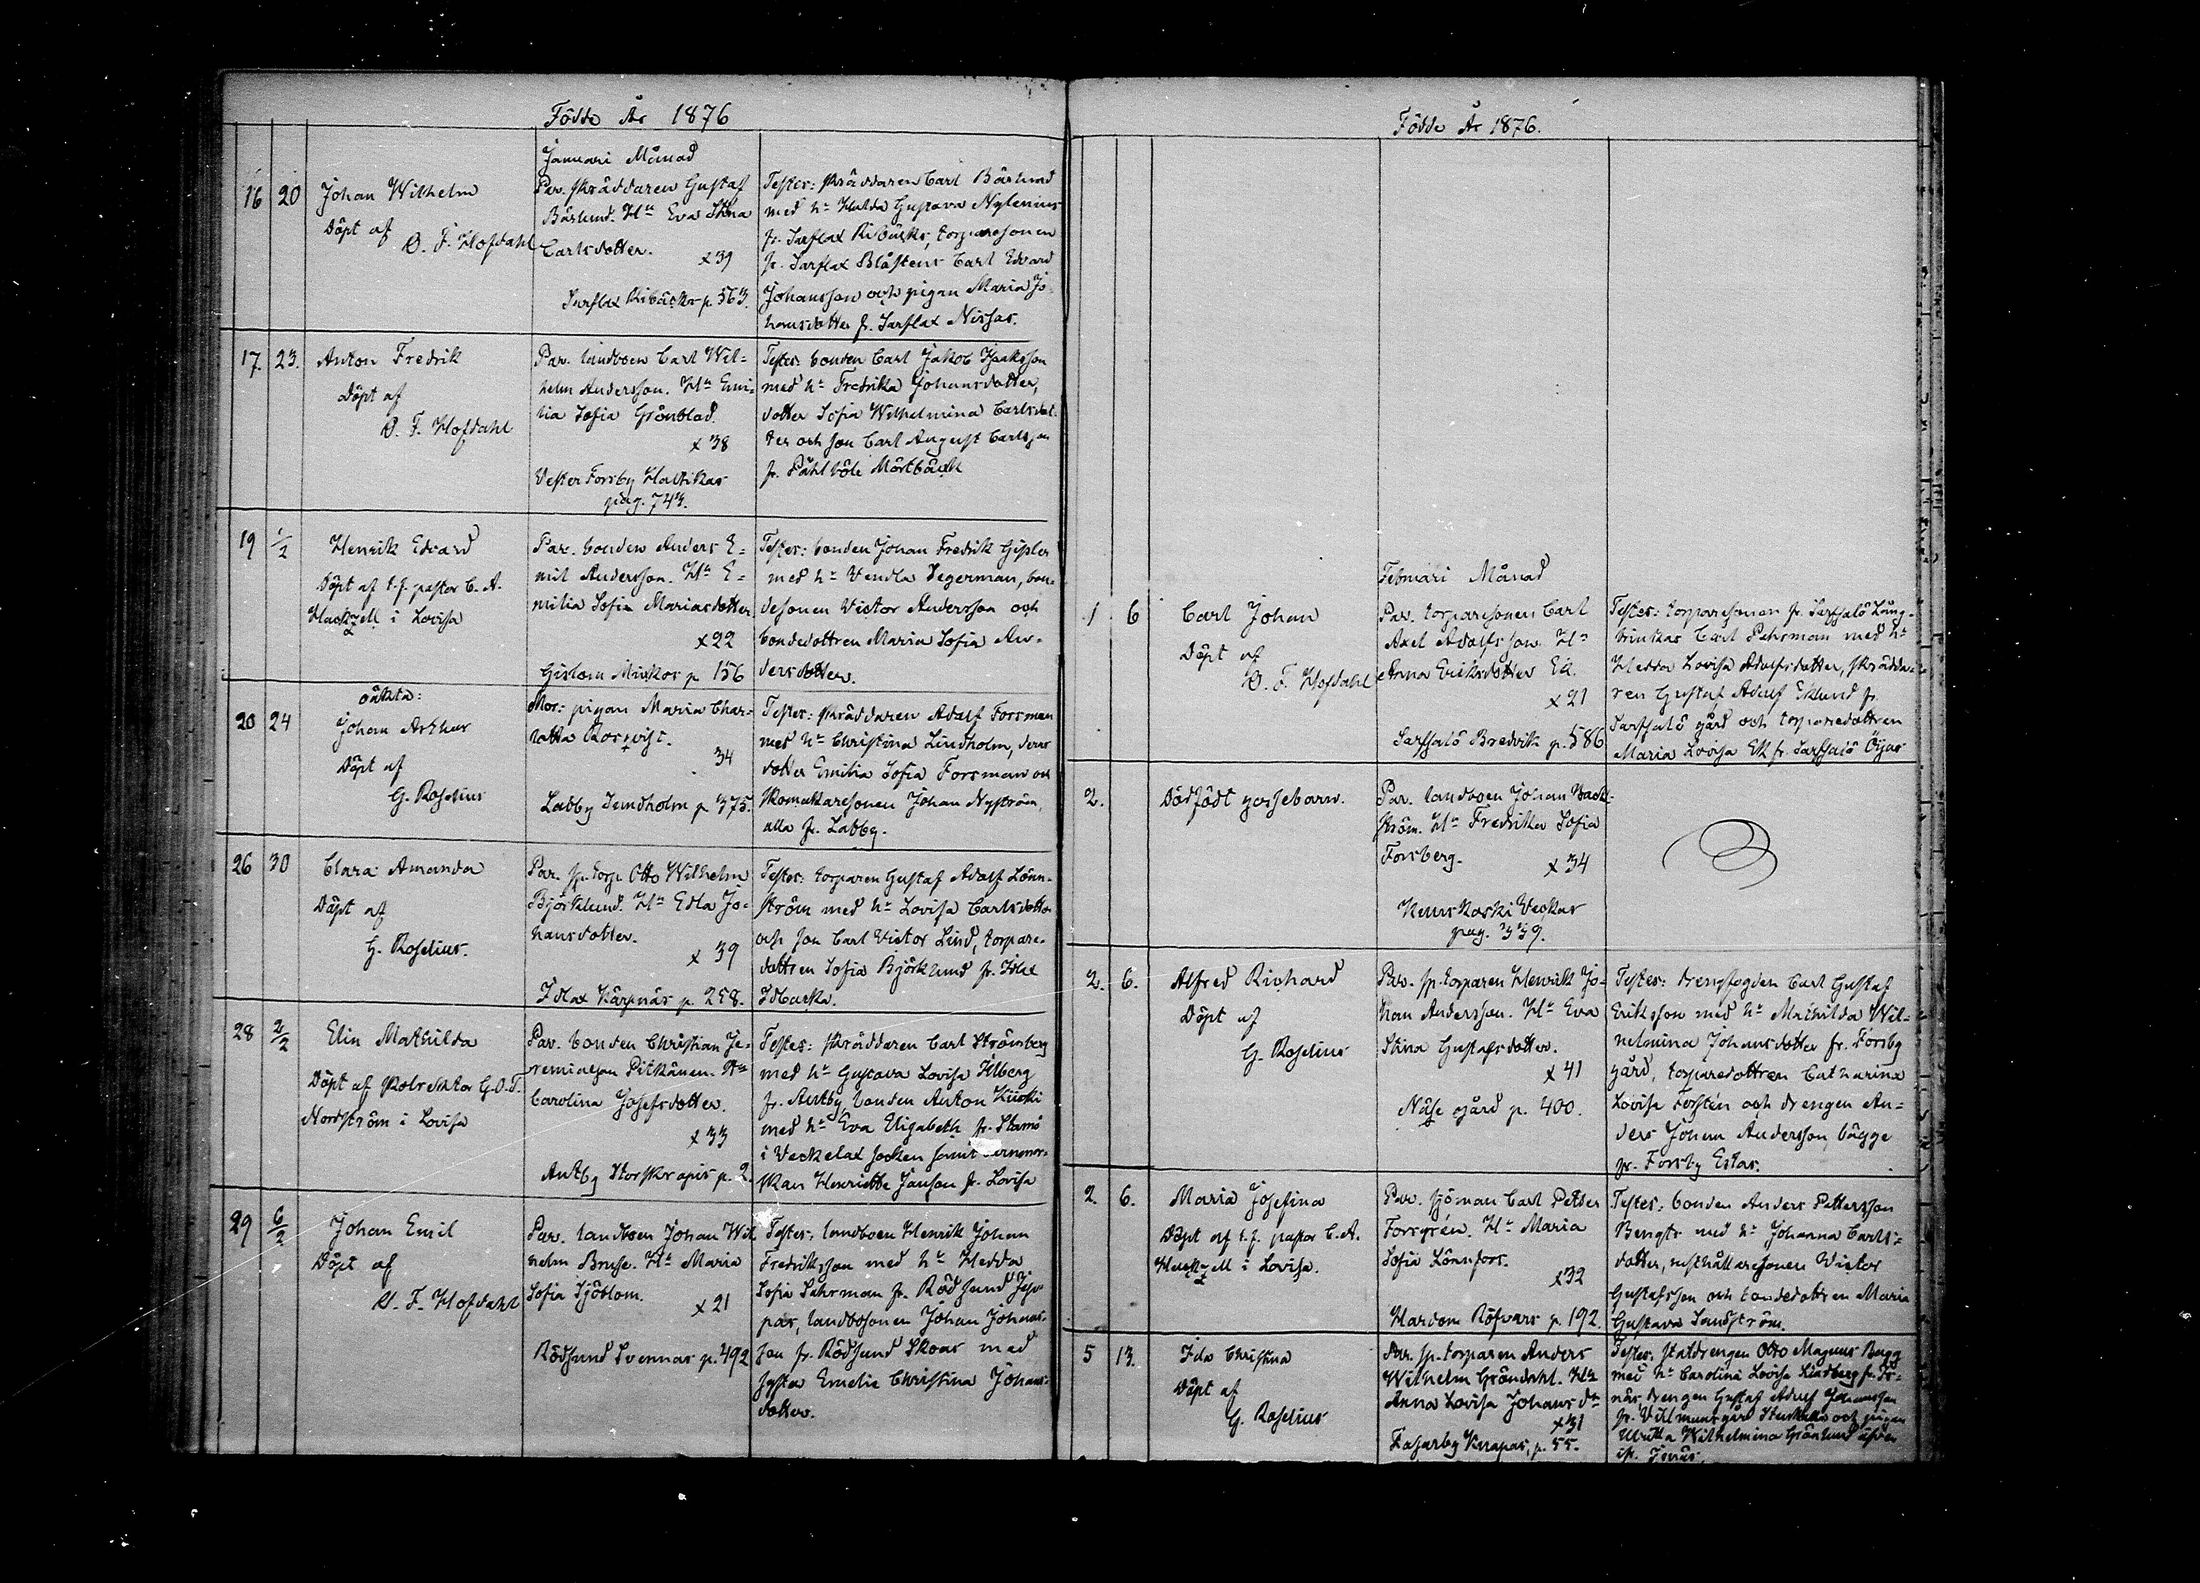 Födde År 1876
Januari Månad
16 20 Johan Wilhelm
Döpt af
O. F. Hofdahl
Par. skräddaren Gustaf
Bärlund. H:u Eva Stina
Carlsdotter.
x39
Sarflax Ribäcks p. 563.
Testes: skräddaren Carl Bärlund
med h:u Hulda Gustava Nylenius
fr. Sarflax Ribäcks, torparesonen
fr. Sarflax Blåstens Carl Edvard
Johansson och pigan Maria Jo-
hansdotter fr. Sarflax Nissas.
17. 23. Anton Fredrik
Döpt af
O. F. Hofdahl
Par. landboen Carl Wil-
helm Andersson. H:u Emi-
lia Sofia Grönblad.
x38
Vester Forsby Haltikas
pag. 743.
Testes: bonden Carl Jakob Isaksson
med h:u Fredrika Johansdotter,
dotter Sofia Wilhelmina Carlsdot-
ter och son Carl August Carlsson
fr. Påhlböle Mörtbäck
19 1/2 Henrik Edvard
Döpt af t.f. pastor C. A.
i Lovisa
Par. bonden Anders E-
mil Andersson. H:u E-
milia Sofia Mariasdotter.
x22
Gislom Mickos p 156
Testes: bonden Johan Fredrik Gisler
med h:u Vendla Segerman, bon-
desonen Victor Andersson och
bondedottren Maria Sofia An-
dersdotter.
20 24 oäkta:
Johan Arthur
Döpt af
G. Roselius
Mor: pigan Maria Char-
lotta Rosqvist.
34
Labby Sundholm p 375.
Testes: skräddaren Adolf Forsman
med h:u Christina Lindholm, deras
dotter Emilia Sofia Forsman och
skomakaresonen Johan Nyström,
alla fr. Labby.
26 30 Clara Amanda
Döpt af
G. Roselius.
Par. sp. torp. Otto Wilhelm
Björklund. H:u Edla Jo-
hansdotter.
x 39
Isلax Kärpnäs p. 258.
Testes: torparen Gustaf Adolf Lönn-
ström med h:u Lovisa Carlsdotter
och son Carl Victor Lind, torpare-
dottren Sofia Björklund fr.
28 2/2 Elin Mathilda
Döpt af Kolrektor G. O. T.
Nordström i Lovisa
Par. bonden Christian Je-
remiasson Pitkänen. H:u
Carolina Josefsdotter.
x33
Antby Storskrapis p. 2.
Testes: skräddaren Carl Strömberg
med h:u Gustava Lovisa Ilberg
fr. Antby, bonden Anton
med h:u Eva Elisabeth fr.
i Veckelax socken samt
skan Henriette Janson fr. Lovisa
29 6/2 Johan Emil
Döpt af
O. F. Hofdahl
Par. landboen Johan Wil
helm Bruse. H:u Maria
Sofia Sjöblom.
x21
Rödsund Svennas p. 492
Testes: landboen Henrik Johan
Fredriksson med h:u Hedda
Sofia Sahrman fr. Rödsund Jep-
pas, landbosonen Johan Johans-
son fr. Rödsund Skoas med
syster Emelie Christina Johans-
dotter.
Födde År 1876.
Februari Månad
1 6 Carl Johan
Döpt af
O. F. Hofdahl
Par. torparesonen Carl
Axel Adolfsson. H:u
Anna Eriksdotter Ek.
x21
Sarfsalö Bredvik p. 586
Testes: torparesonen fr. Sarfsalö Lång-
brinkas Carl Fehrman med h:u
Hedda Lovisa Adolfsdotter, skrädda-
ren Gustaf Adolf Eklund fr.
Sarfsalö gård och torparedottren
Maria Lovisa Ek fr. Sarfsalö Öijas
2. Dödfödt gossebarn.
Par. landboen Johan Back-
ström. H:u Fredrika Sofia
Forsberg.
x34
Kuuskoski Veckas
pag. 339.
2. 6. Alfred Richard
Döpt af
G. Roselius
Par. sp. torparen Henrik Jo-
han Andersson. H:u Eva
Stina Gustafsdotter.
x 41
Näse gård p. 400.
Testes: drengfogden Carl Gustaf
Eriksson med h:u Mathilda Wil-
helmina Johansdotter fr. Forsby
gård, torparedottren Catharina
Lovisa Forstén och drengen An-
ders Johan Andersson, bägge
fr. Forsby Estas.
2. 6. Maria Josefina
Döpt af t.f. pastor C. A.
i Lovisa.
Par. sjöman Carl Petter
Forsgrén. H:u Maria
Sofia Lönnfors.
x32
Hardom Röfvars p. 192.
Testes: bonden Anders Pettersson
Bengts med h:u Johanna Carls-
dotter, rusthållaresonen Victor
Gustafsson och bondedottren Maria
Gustava Sandström.
5 13. Ida Christina
Döpt af
G. Roselius
Par. sp. torparen Anders
Wilhelm Gröndahl. H:u
Anna Lovisa Johansd:r
x31
Fasarby Knapas, p. 55.
Testes: statdrengen Otto Magnus Bagg
med h:u Carolina Lovisa Lindberg fr. Is-
näs, drengen Gustaf Adolf Johansson
fr. gård och pigan
Ulrika Wilhelmina Grönlund
fr. Isnäs.